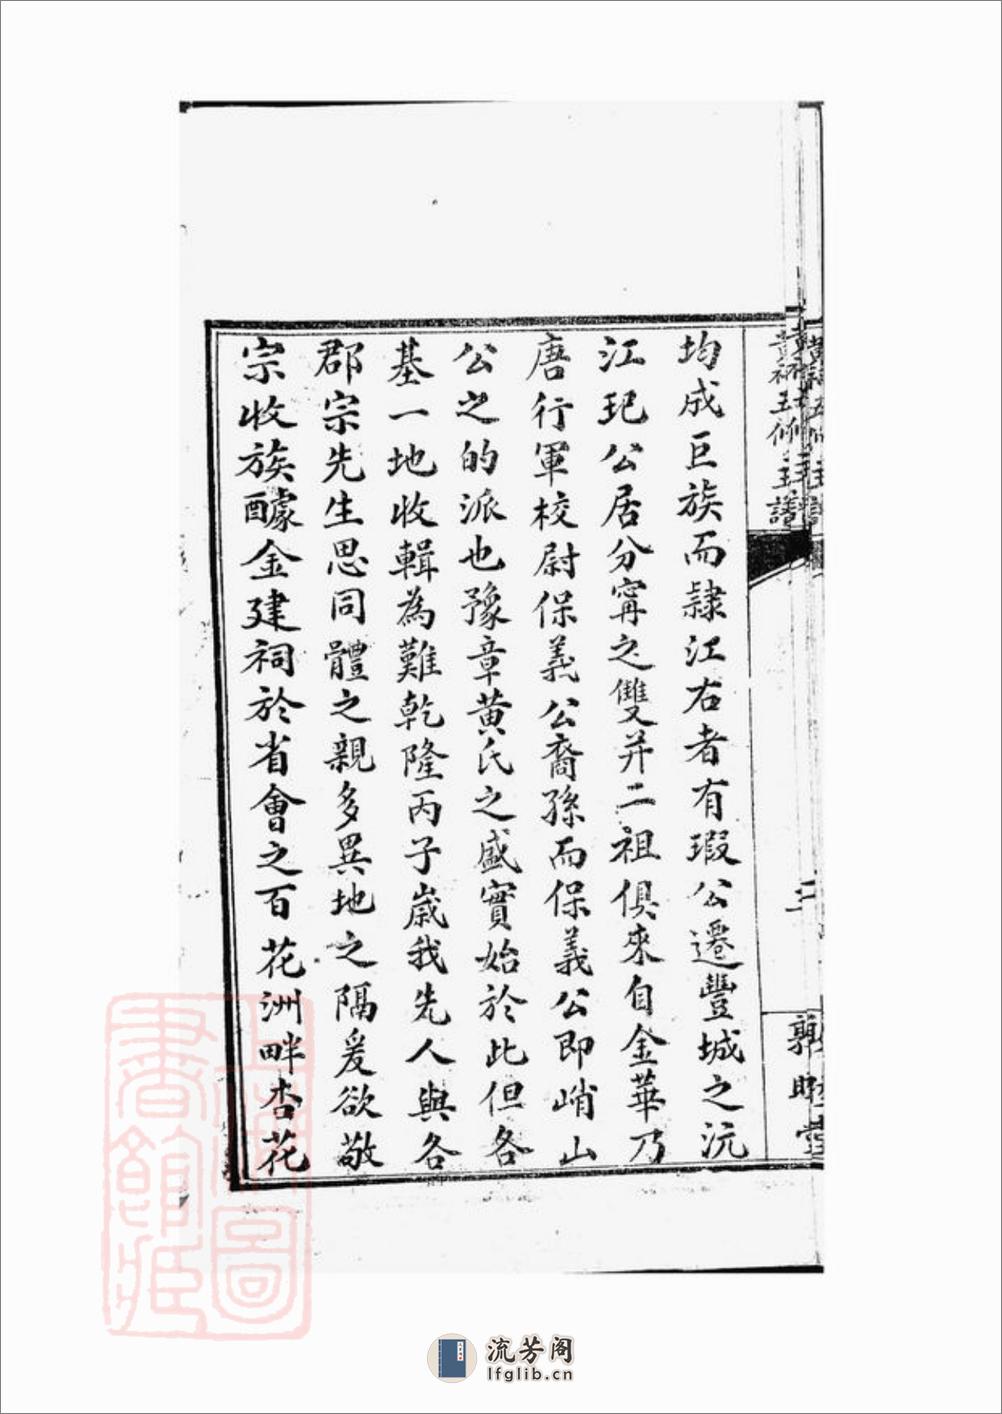 黃祠五修主譜
三
均成巨族而隷江右者有瑕公遷豐城之沅
江玘公居分寗之雙井二祖俱來自金華乃
唐行軍校尉保義公裔孫而保義公即峭山
公之的派也豫章黃氏之盛實始於此但各
基一地收輯為難乾隆丙子嵗我先人與各
郡宗先生思同體之親多異地之隔爰欲敬
宗收族醵金建祠於省會之百花洲畔杏花
流芳阁
lfglib.cn